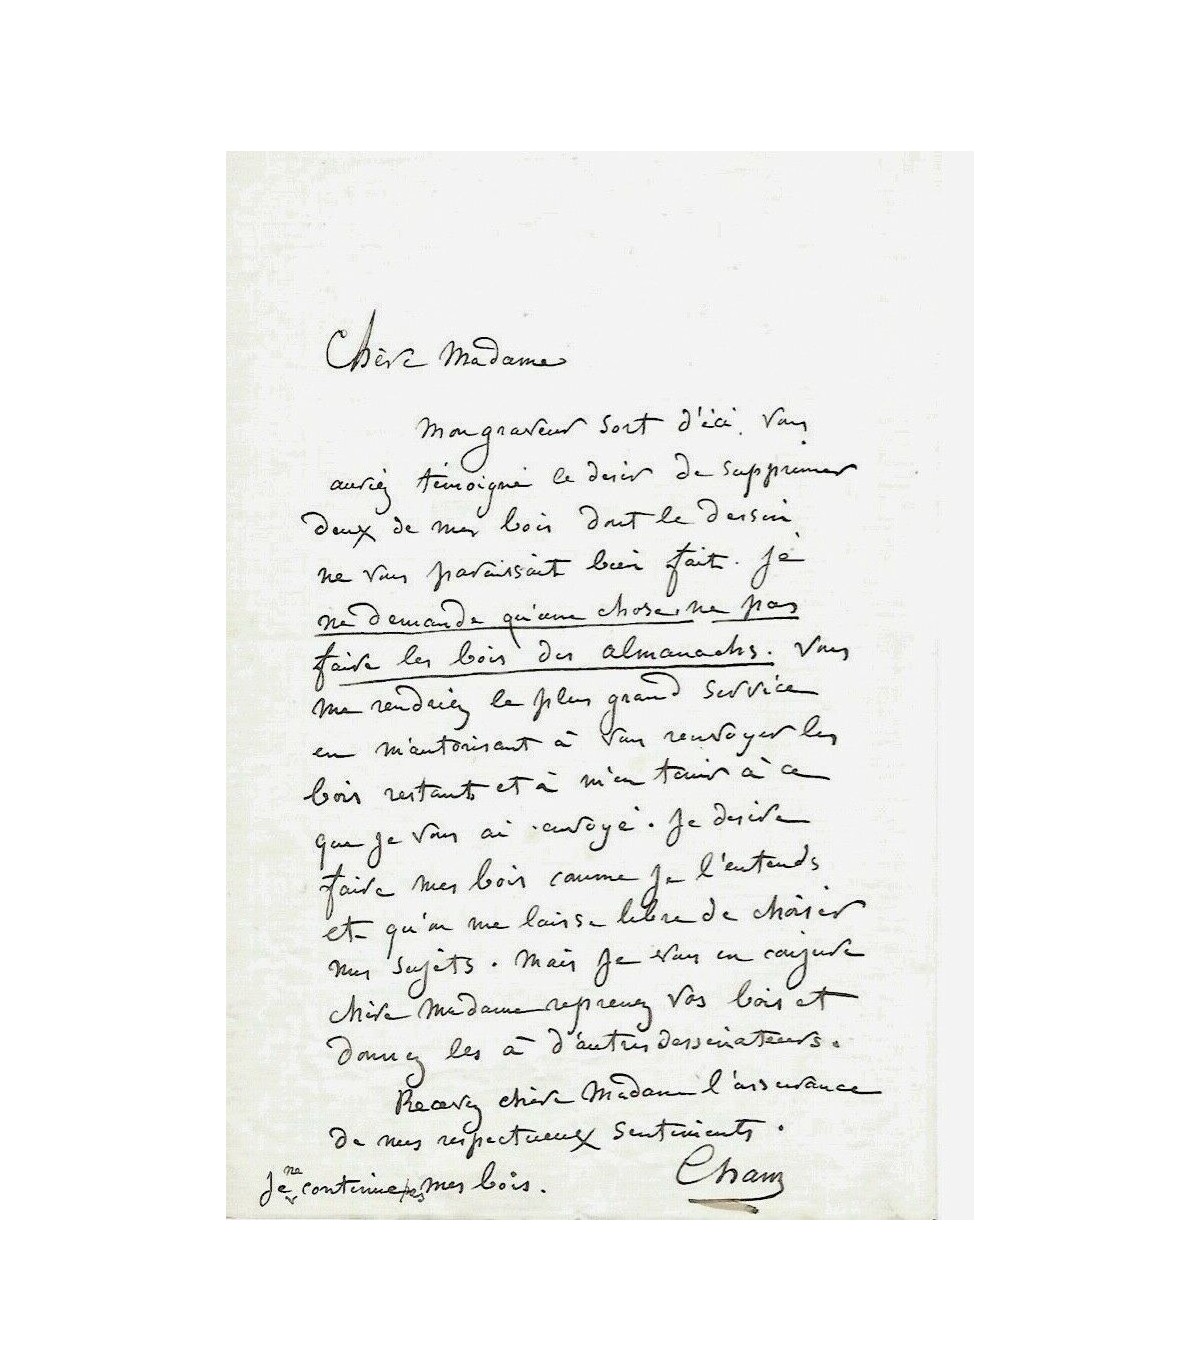 Chère Madame
Mon graveur sort d'ici. Vous
auriez témoigné le desir de supprimer
deux de mes bois dont le dessin
ne vous paraissait bien fait. Je
ne demande qu'une chose, ne pas
faire les bois des almanachs. Vous
me rendriez le plus grand service
en m'autorisant à vous renvoyer les
bois restants et à m'en tenir à ce
que je vous ai envoyé. Je desire
faire mes bois comme je l'entends
et qu'on me laisse libre de choisir
mes sujets. Mais je vous en conjure
chère Madame reprenez vos bois et
donnez les à d'autres dessinateurs.
Recevez chère Madame l'assurance
de mes respectueux sentiments.
Cham
Je ne continue pas mes bois.